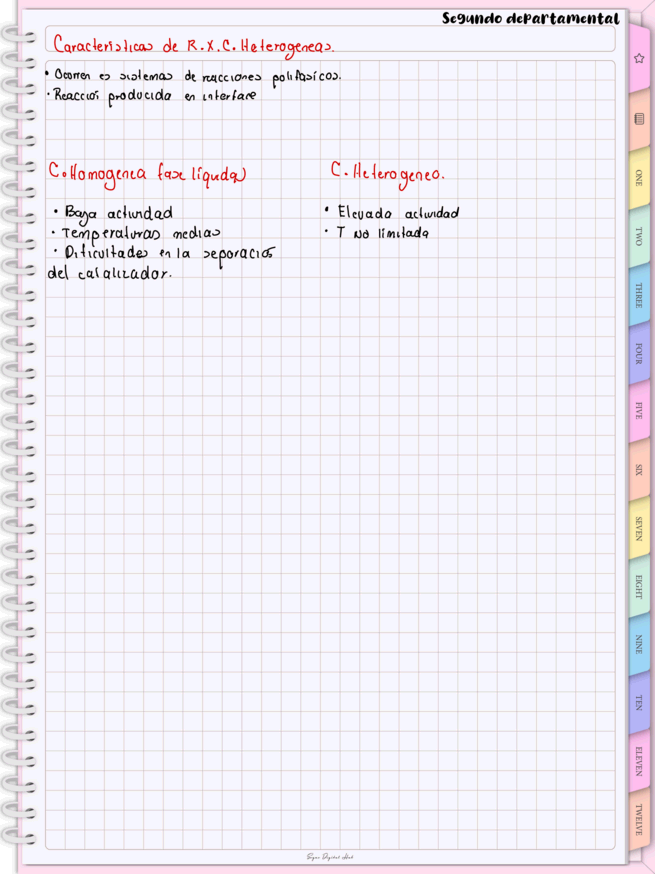 Segundo departamental
Características de R.X.C. Heterogeneas.
• Ocurren es sistemas de reacciones polifasicos.
• Reaccios producida en interfase
C. Homogenea fase líquida
C. Heterogeneo.
• Baja actividad
• Temperaturas medias
• Dificultades en la separacios
del catalizador.
• Elevada actividad
• T No limitada
ONE
TWO
THREE
FOUR
FIVE
SIX
SEVEN
EIGHT
NINE
TEN
ELEVEN
TWELVE